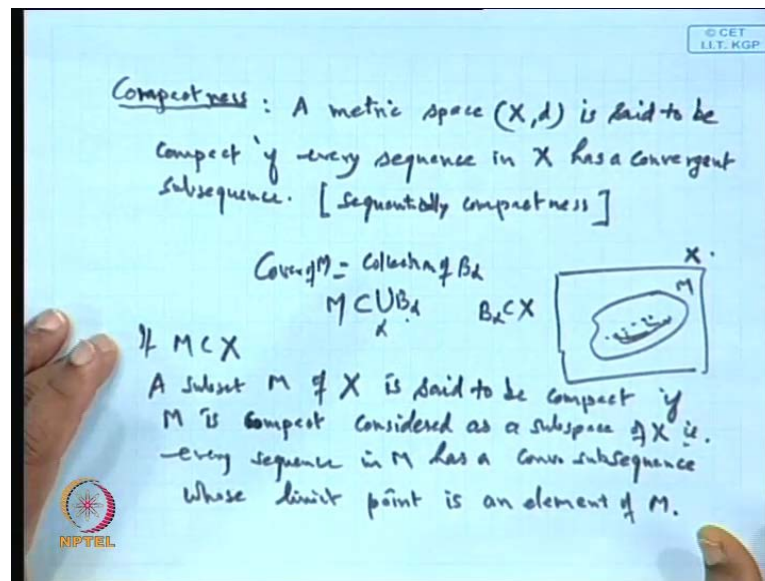 © CET
I.I.T. KGP
Compactness : A metric space (X,d) is said to be
compact if every sequence in X has a convergent
subsequence. [Sequentially compactness]
Cover of M = Collection of Bα
M ⊂ ∪ Bα Bα ⊂ X
α
X
M
If M ⊂ X
A subset M of X is said to be compact if
M is compact considered as a subspace of X ie.
every sequence in M has a conv subsequence
whose limit point is an element of M.
NPTEL